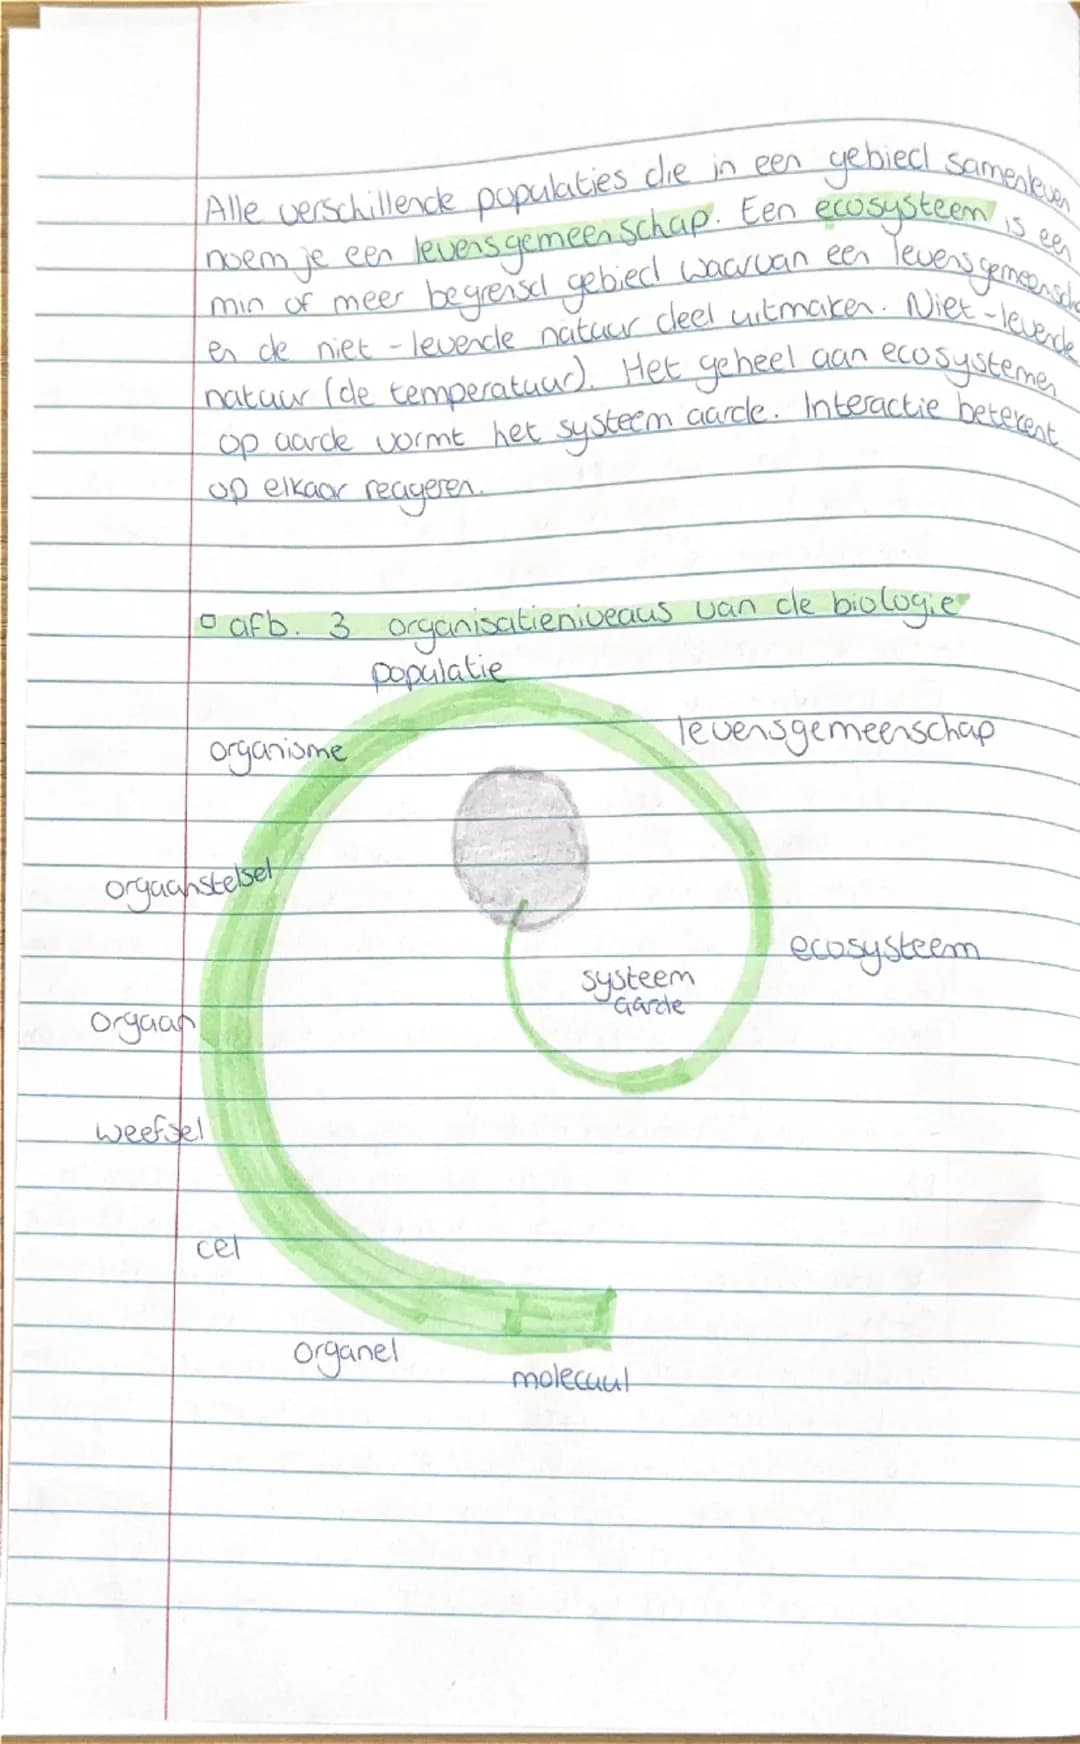 Alle verschillende populaties die in een gebied samenleven
noem je een levensgemeenschap. Een ecosysteem is een
min of meer begrensd gebied waarvan een levensgemeensch
en de niet-levende natuur deel uitmaken. Niet-levende
natuur (de temperatuur). Het geheel aan ecosystemen
op aarde vormt het systeem aarde. Interactie betekent
op elkaar reageren.
afb. 3 organisatieniveaus van de biologie
populatie
levensgemeenschap
organisme
orgaanstelsel
ecosysteem
systeem
aarde
orgaan
weefsel
cel
organel
molecuul